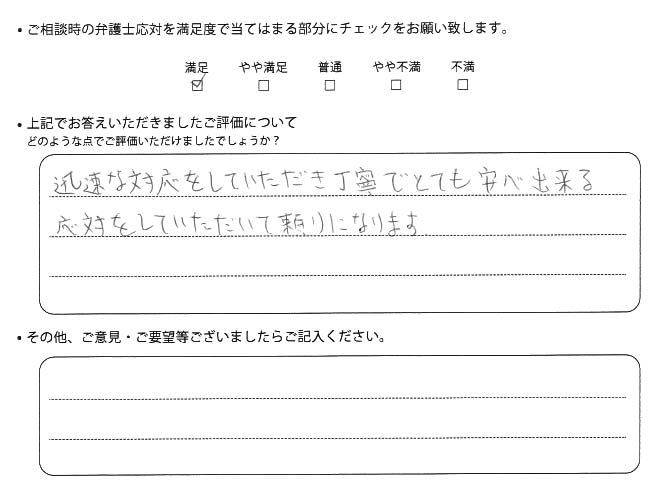 • ご相談時の弁護士応対を満足度で当てはまる部分にチェックをお願い致します。
満足 やや満足 普通 やや不満 不満
☑ □ □ □ □
• 上記でお答えいただきましたご評価について
どのような点でご評価いただけましたでしょうか？
迅速な対応をしていただき丁寧でとても安心出来る
応対をしていただいて頼りになります
• その他、ご意見・ご要望等ございましたらご記入ください。